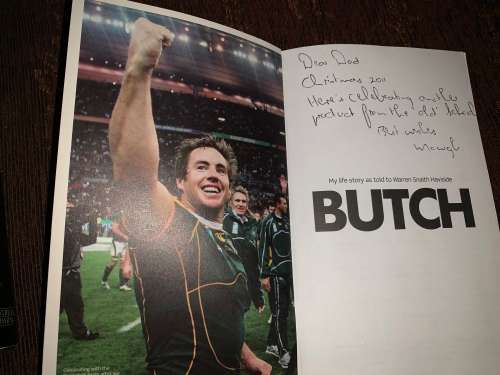 Dear Dad
Christmas 2011
Here's celebrating another
product from the 'old' school
Best wishes
My life story as told to Warren Snaith Haveside
BUTCH
Celebrating with the